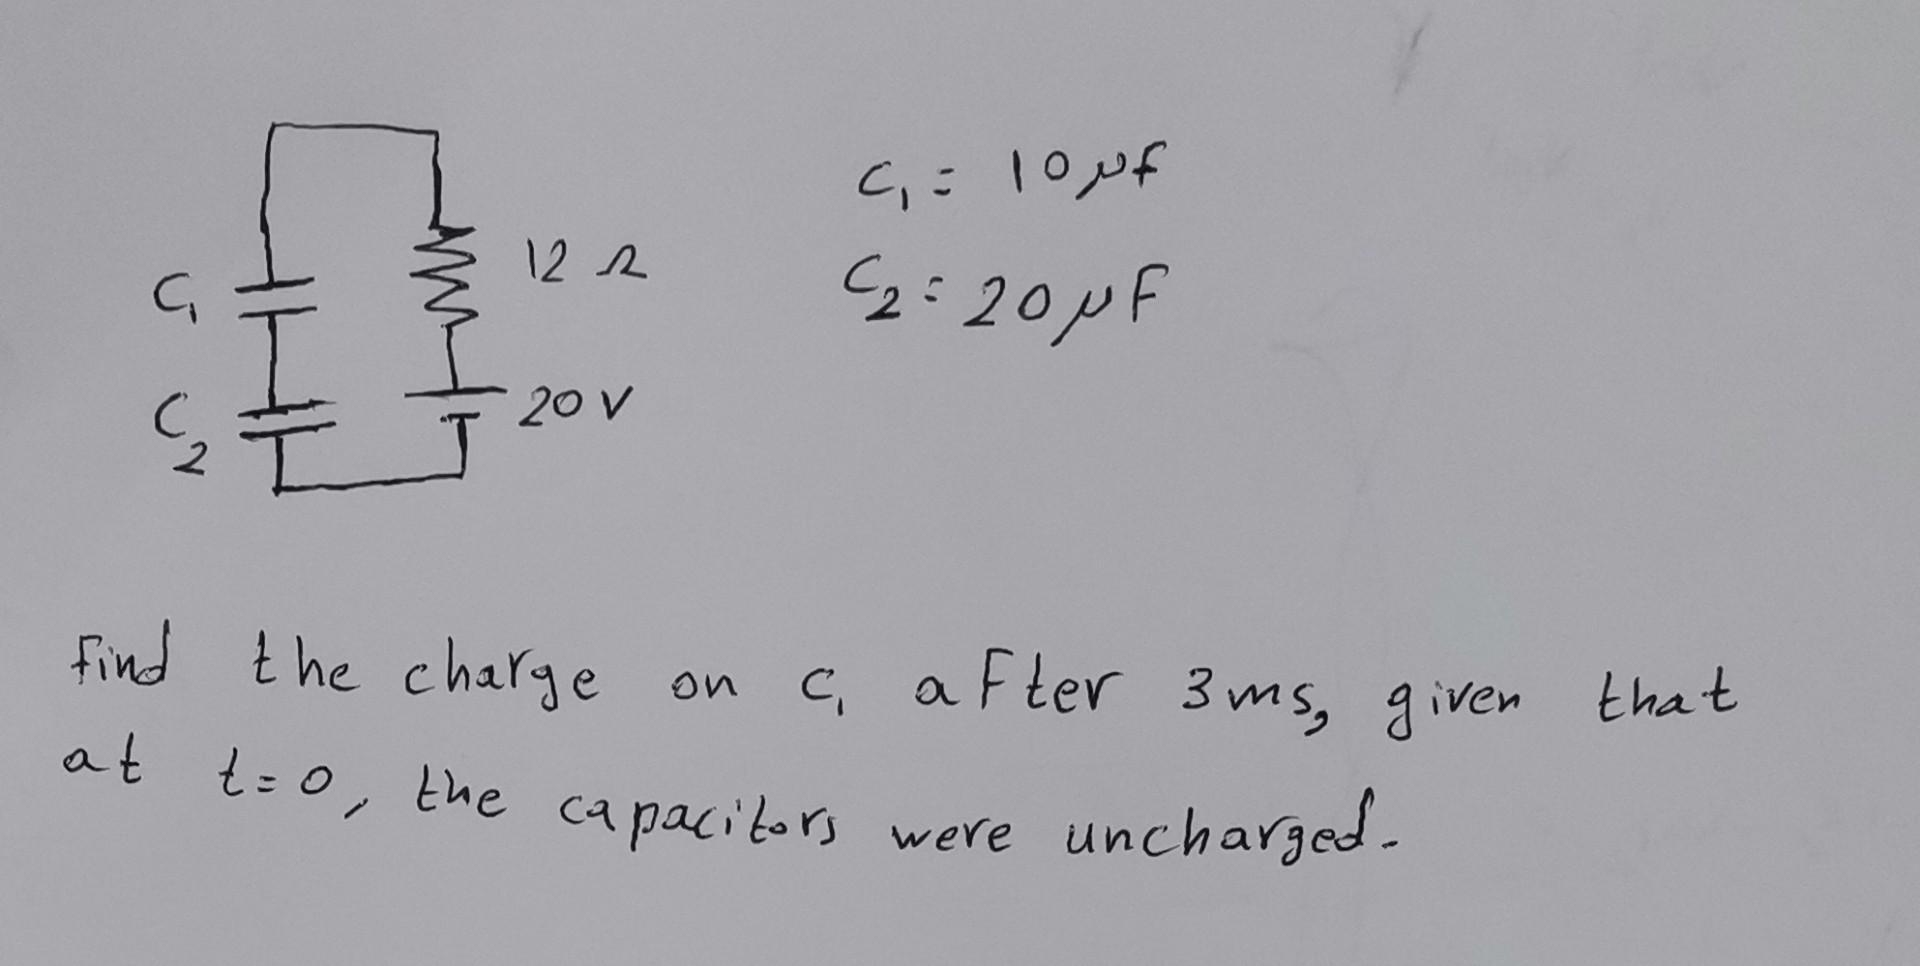 C₁ = 10 μf
12 Ω
C₁
C₂ = 20 μF
C₂
20 V
Find the charge on C₁ after 3 ms, given that
at t=0, the capacitors were uncharged.